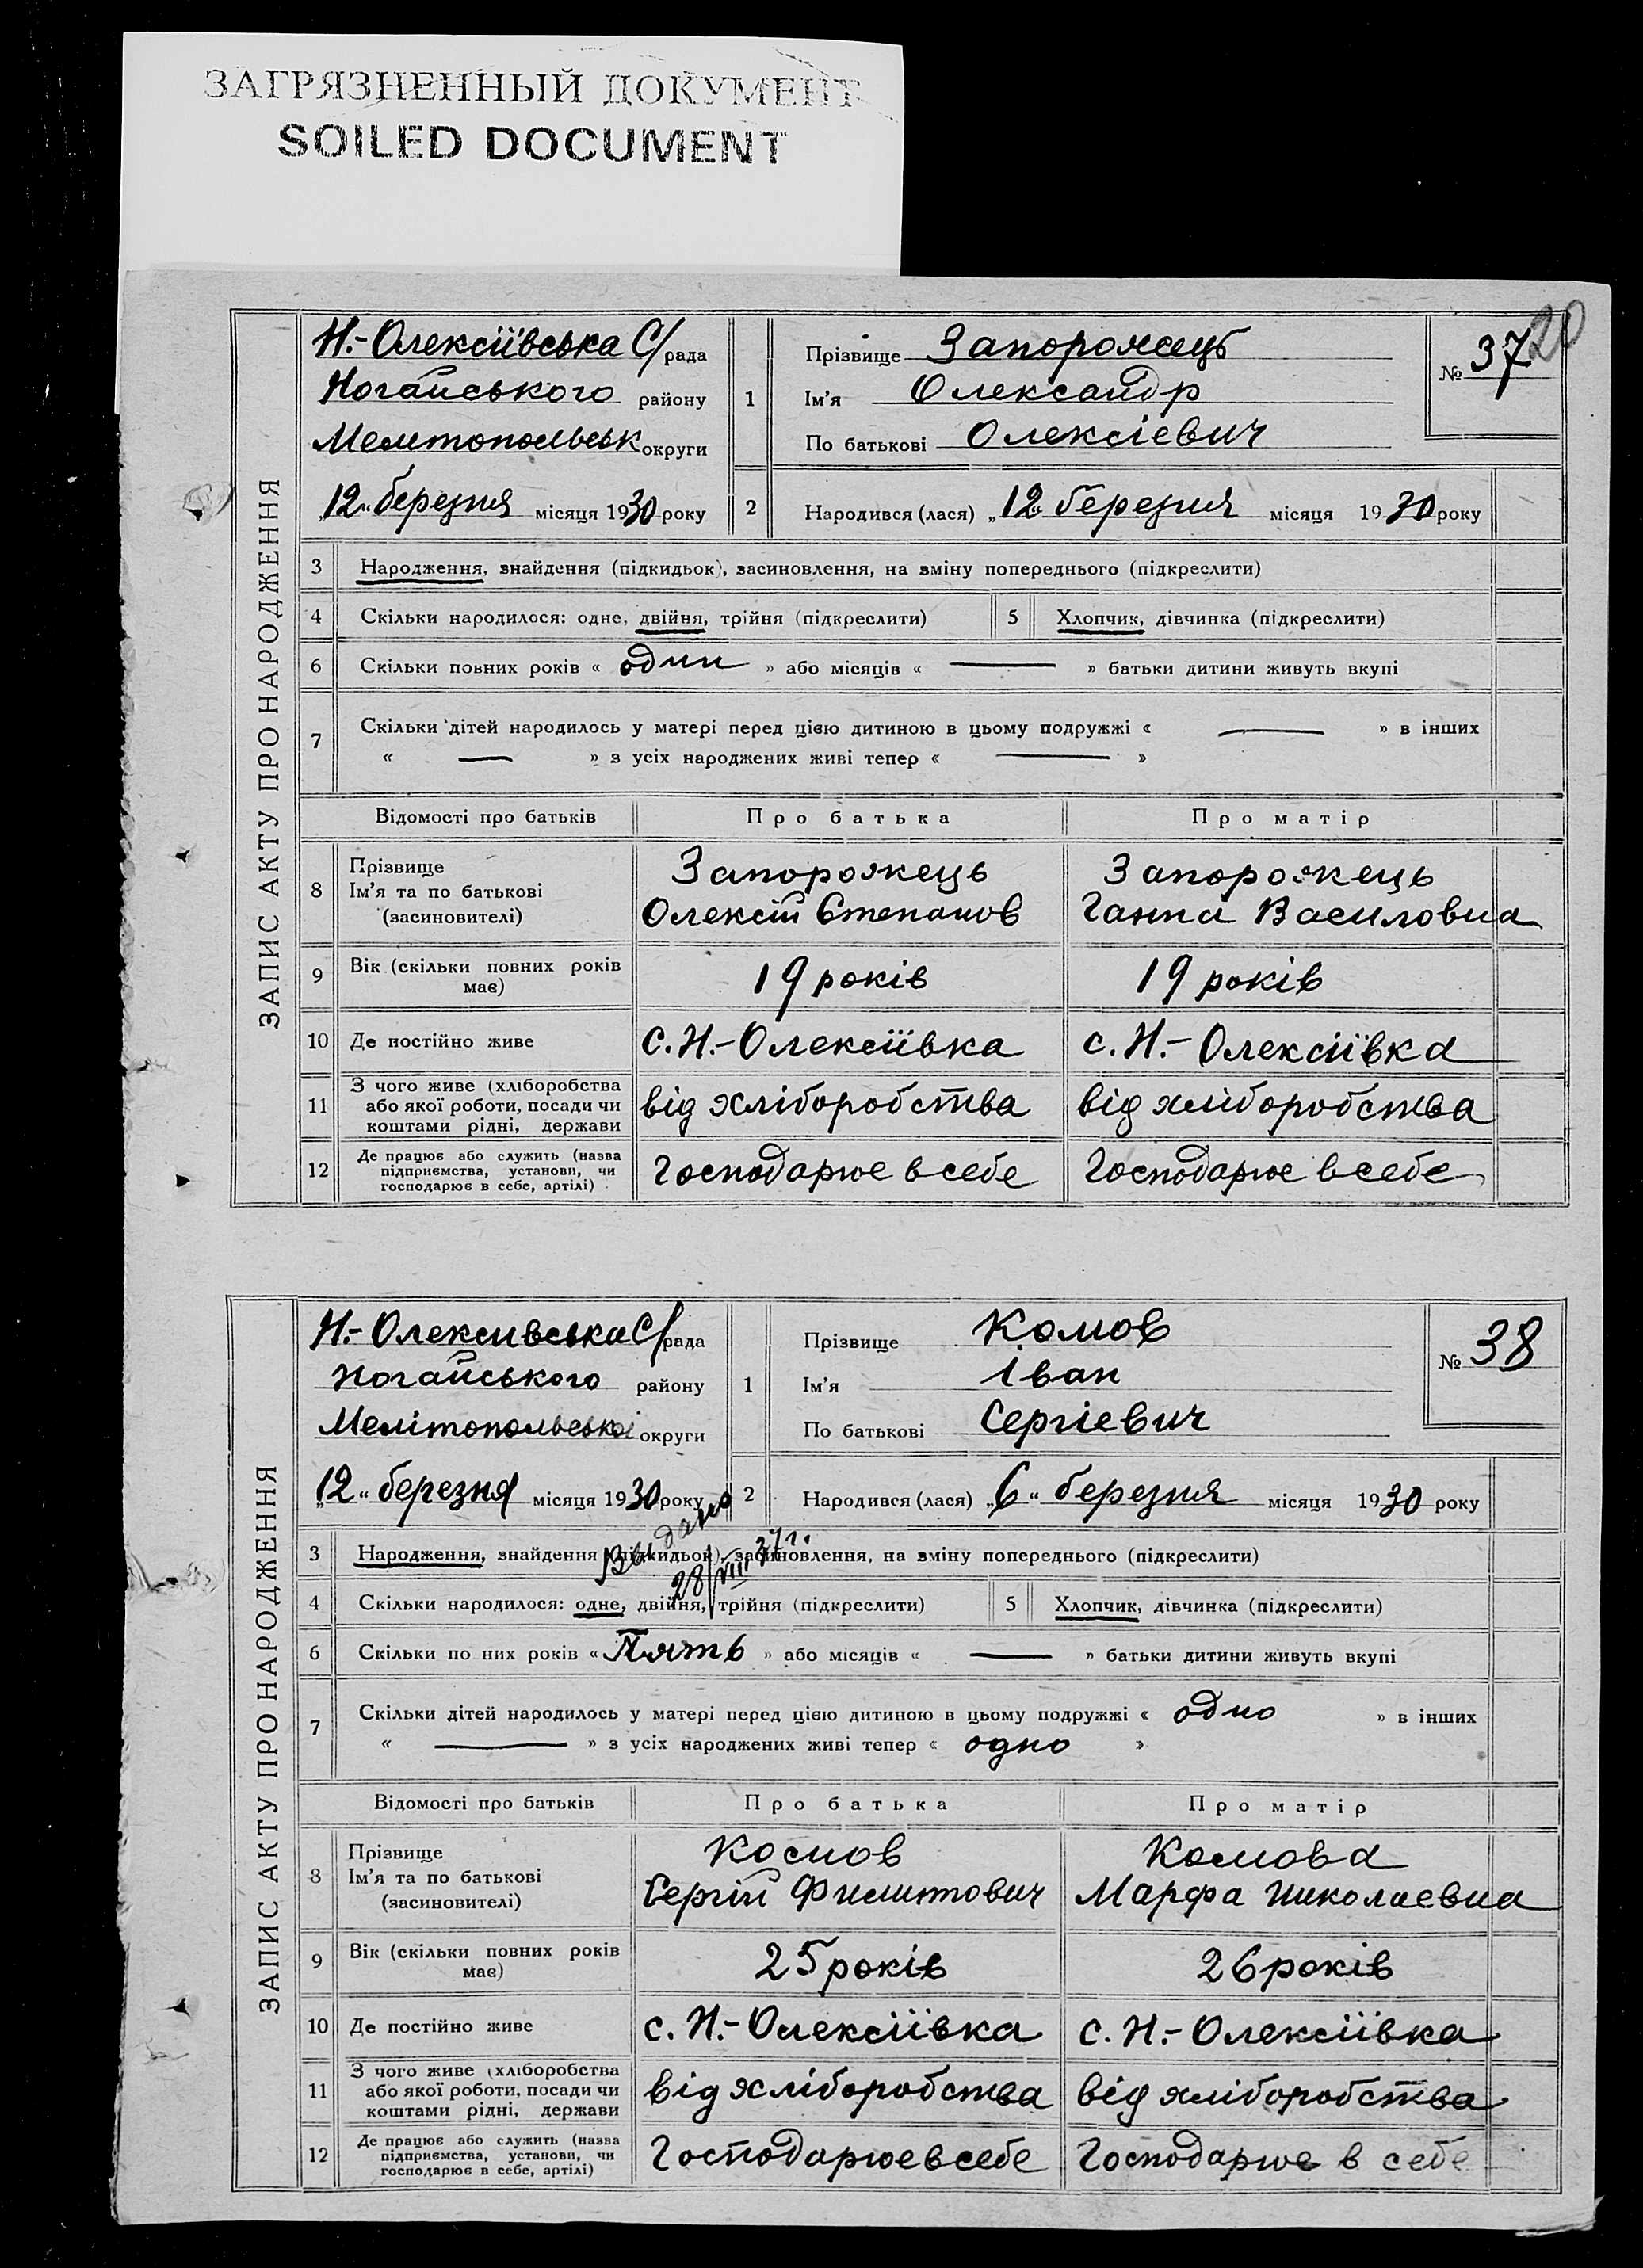 ЗАГРЯЗНЕННЫЙ ДОКУМЕНТ
SOILED DOCUMENT
20
ЗАПИС АКТУ ПРО НАРОДЖЕННЯ
Н.-Олексіївська С/рада
Ногайського району
Мелитопольськ округи
„12“ березня місяця 1930 року
1 Прізвище Запорожець
Ім'я Олександр
По батькові Олексієвич
№ 37
2 Народився (лася) „12 березня місяця 1930 року
3 Народження, знайдення (підкидьок), засиновлення, на зміну попереднього (підкреслити)
4 Скільки народилося: одне, двійня, трійня (підкреслити) 5 Хлопчик, дівчинка (підкреслити)
6 Скільки повних років « один » або місяців « — » батьки дитини живуть вкупі
7 Скільки дітей народилось у матері перед цією дитиною в цьому подружжі « — » в інших
« — » з усіх народжених живі тепер « — »
Відомості про батьків Про батька Про матір
8 Прізвище Запорожець Запорожець
Ім'я та по батькові Олексій Степанов Ганна Василовна
(засиновителі)
9 Вік (скільки повних років має) 19 років 19 років
10 Де постійно живе с. Н.-Олексіївка с. Н.-Олексіївка
11 З чого живе (хліборобства або якої роботи, посади чи коштами рідні, держави від хліборобства від хліборобства
12 Де працює або служить (назва підприємства, установи, чи господарює в себе, артілі) Господарює в себе Господарює в себе
ЗАПИС АКТУ ПРО НАРОДЖЕННЯ
Н.-Олексивська С/рада
Ногайського району
Мелітопольської округи
„12“ березня місяця 1930 року
1 Прізвище Комов
Ім'я Іван
По батькові Сергіевич
№ 38
2 Народився (лася) „6“ березня місяця 1930 року
Видано
28/VIII 37 г.
3 Народження, знайдення (підкидьок), засиновлення, на зміну попереднього (підкреслити)
4 Скільки народилося: одне, двійня, трійня (підкреслити) 5 Хлопчик, дівчинка (підкреслити)
6 Скільки по них років « Пять » або місяців « — » батьки дитини живуть вкупі
7 Скільки дітей народилось у матері перед цією дитиною в цьому подружжі « одно » в інших
« — » з усіх народжених живі тепер « одно »
Відомості про батьків Про батька Про матір
8 Прізвище Комов Комова
Ім'я та по батькові Сергій Марфа Николаевна
(засиновителі)
9 Вік (скільки повних років має) 25 років 26 років
10 Де постійно живе с. Н.-Олексіївка с. Н.-Олексіївка
11 З чого живе (хліборобства або якої роботи, посади чи коштами рідні, держави від хліборобства від хліборобства
12 Де працює або служить (назва підприємства, установи, чи господарює в себе, артілі) Господарює в себе Господарює в себе